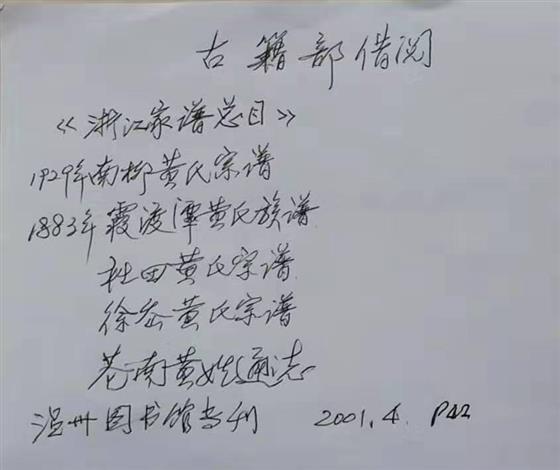 古籍部借阅
《浙江家谱总目》
1929年南柳黄氏宗谱
1883年霞渡潭黄氏族谱
杜田黄氏宗谱
徐岙黄氏宗谱
苍南黄姓通志
温州图书馆专刊 2001.4. P42